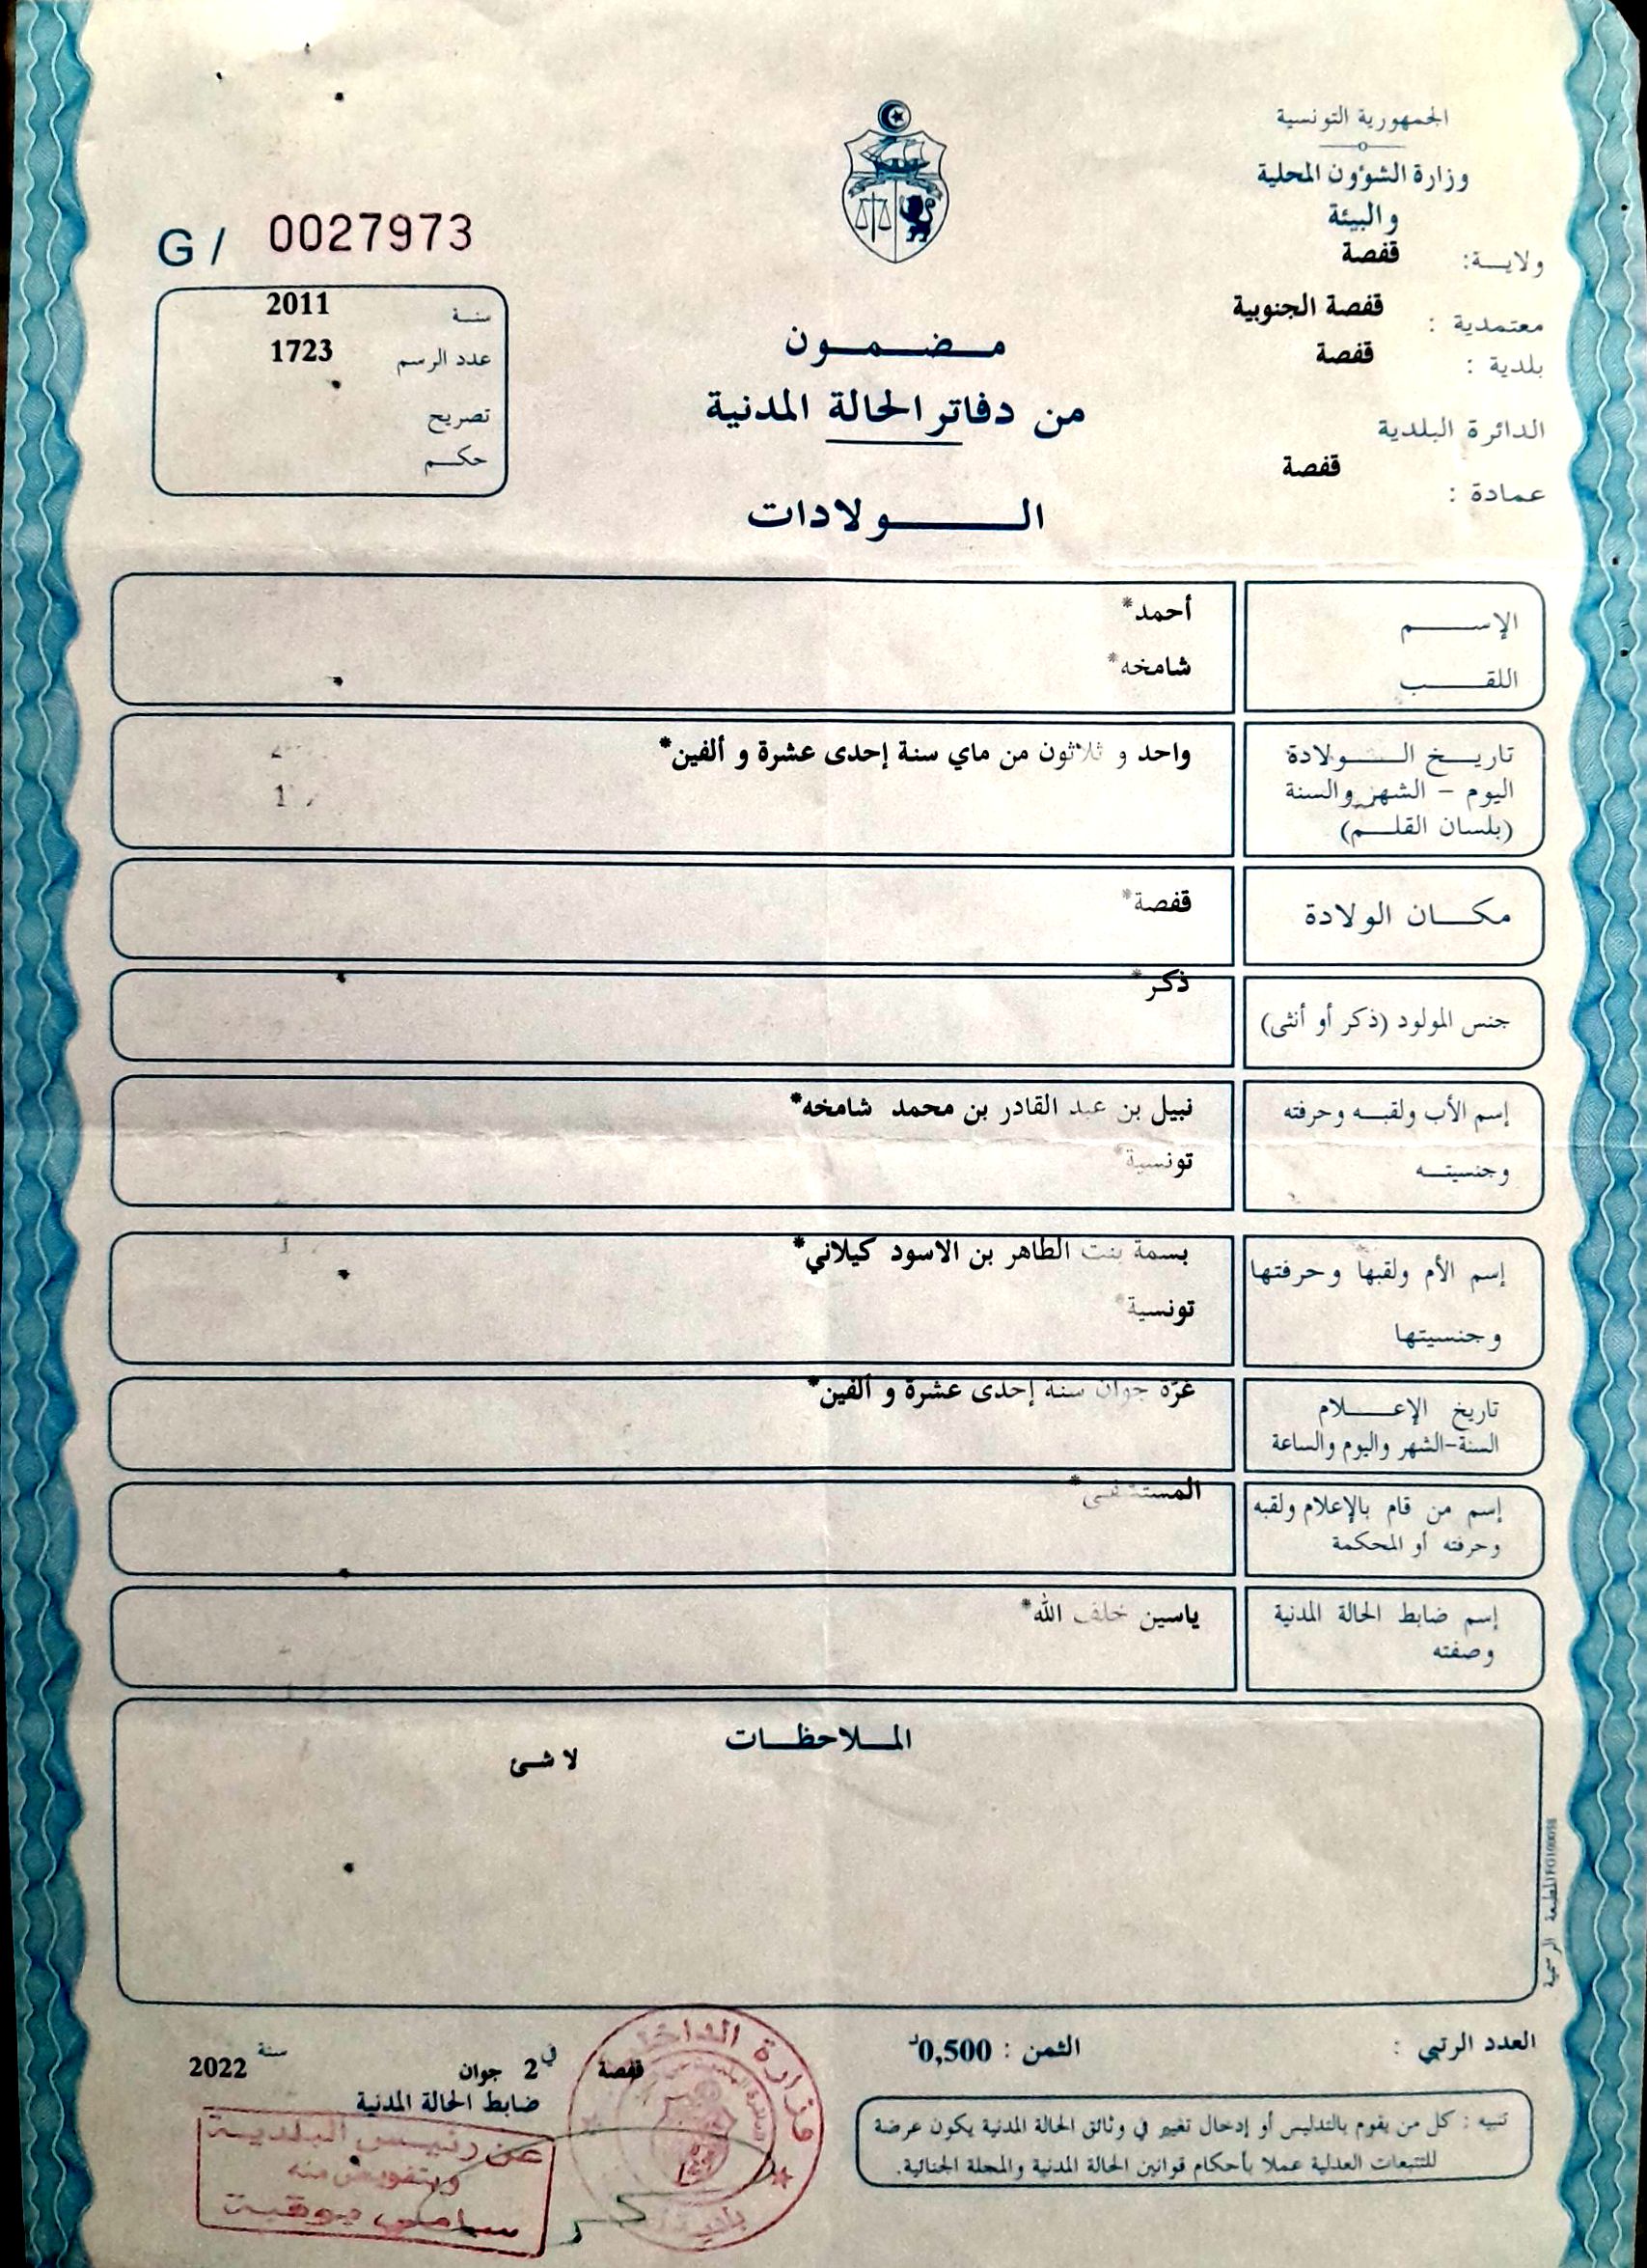 الجمهورية التونسية
وزارة الشؤون المحلية
والبيئة
ولاية: قفصة
معتمدية : قفصة الجنوبية
بلدية : قفصة
الدائرة البلدية
قفصة
عمادة :
G / 0027973
سنة 2011
عدد الرسم 1723
تصريح
حكم
مضمون
من دفاتر الحالة المدنية
الولادات
الإسم أحمد*
اللقب شامخه*
تاريخ الولادة واحد و ثلاثون من ماي سنة إحدى عشرة و ألفين*
اليوم – الشهر والسنة
(بلسان القلم)
مكان الولادة قفصة*
جنس المولود (ذكر أو أنثى) ذكر*
إسم الأب ولقبه وحرفته نبيل بن عبد القادر بن محمد شامخه*
وجنسيته تونسية*
إسم الأم ولقبها وحرفتها بسمة بنت الطاهر بن الاسود كيلاني*
وجنسيتها تونسية*
تاريخ الإعلام غرّة جوان سنة إحدى عشرة و ألفين*
السنة-الشهر واليوم والساعة
إسم من قام بالإعلام ولقبه المستشفى*
وحرفته أو المحكمة
إسم ضابط الحالة المدنية ياسين خلف الله*
وصفته
الملاحظات
لا شئ
المطبعة الرسمية
العدد الرتبي :
الثمن : 0,500د
قفصة في 2 جوان سنة 2022
ضابط الحالة المدنية
عن رئيس البلدية
وبتفويض منه
سامي بوقية
وزارة الداخلية
تنبيه : كل من يقوم بالتدليس أو إدخال تغيير في وثائق الحالة المدنية يكون عرضة
للتتبعات العدلية عملا بأحكام قوانين الحالة المدنية والمجلة الجنائية.